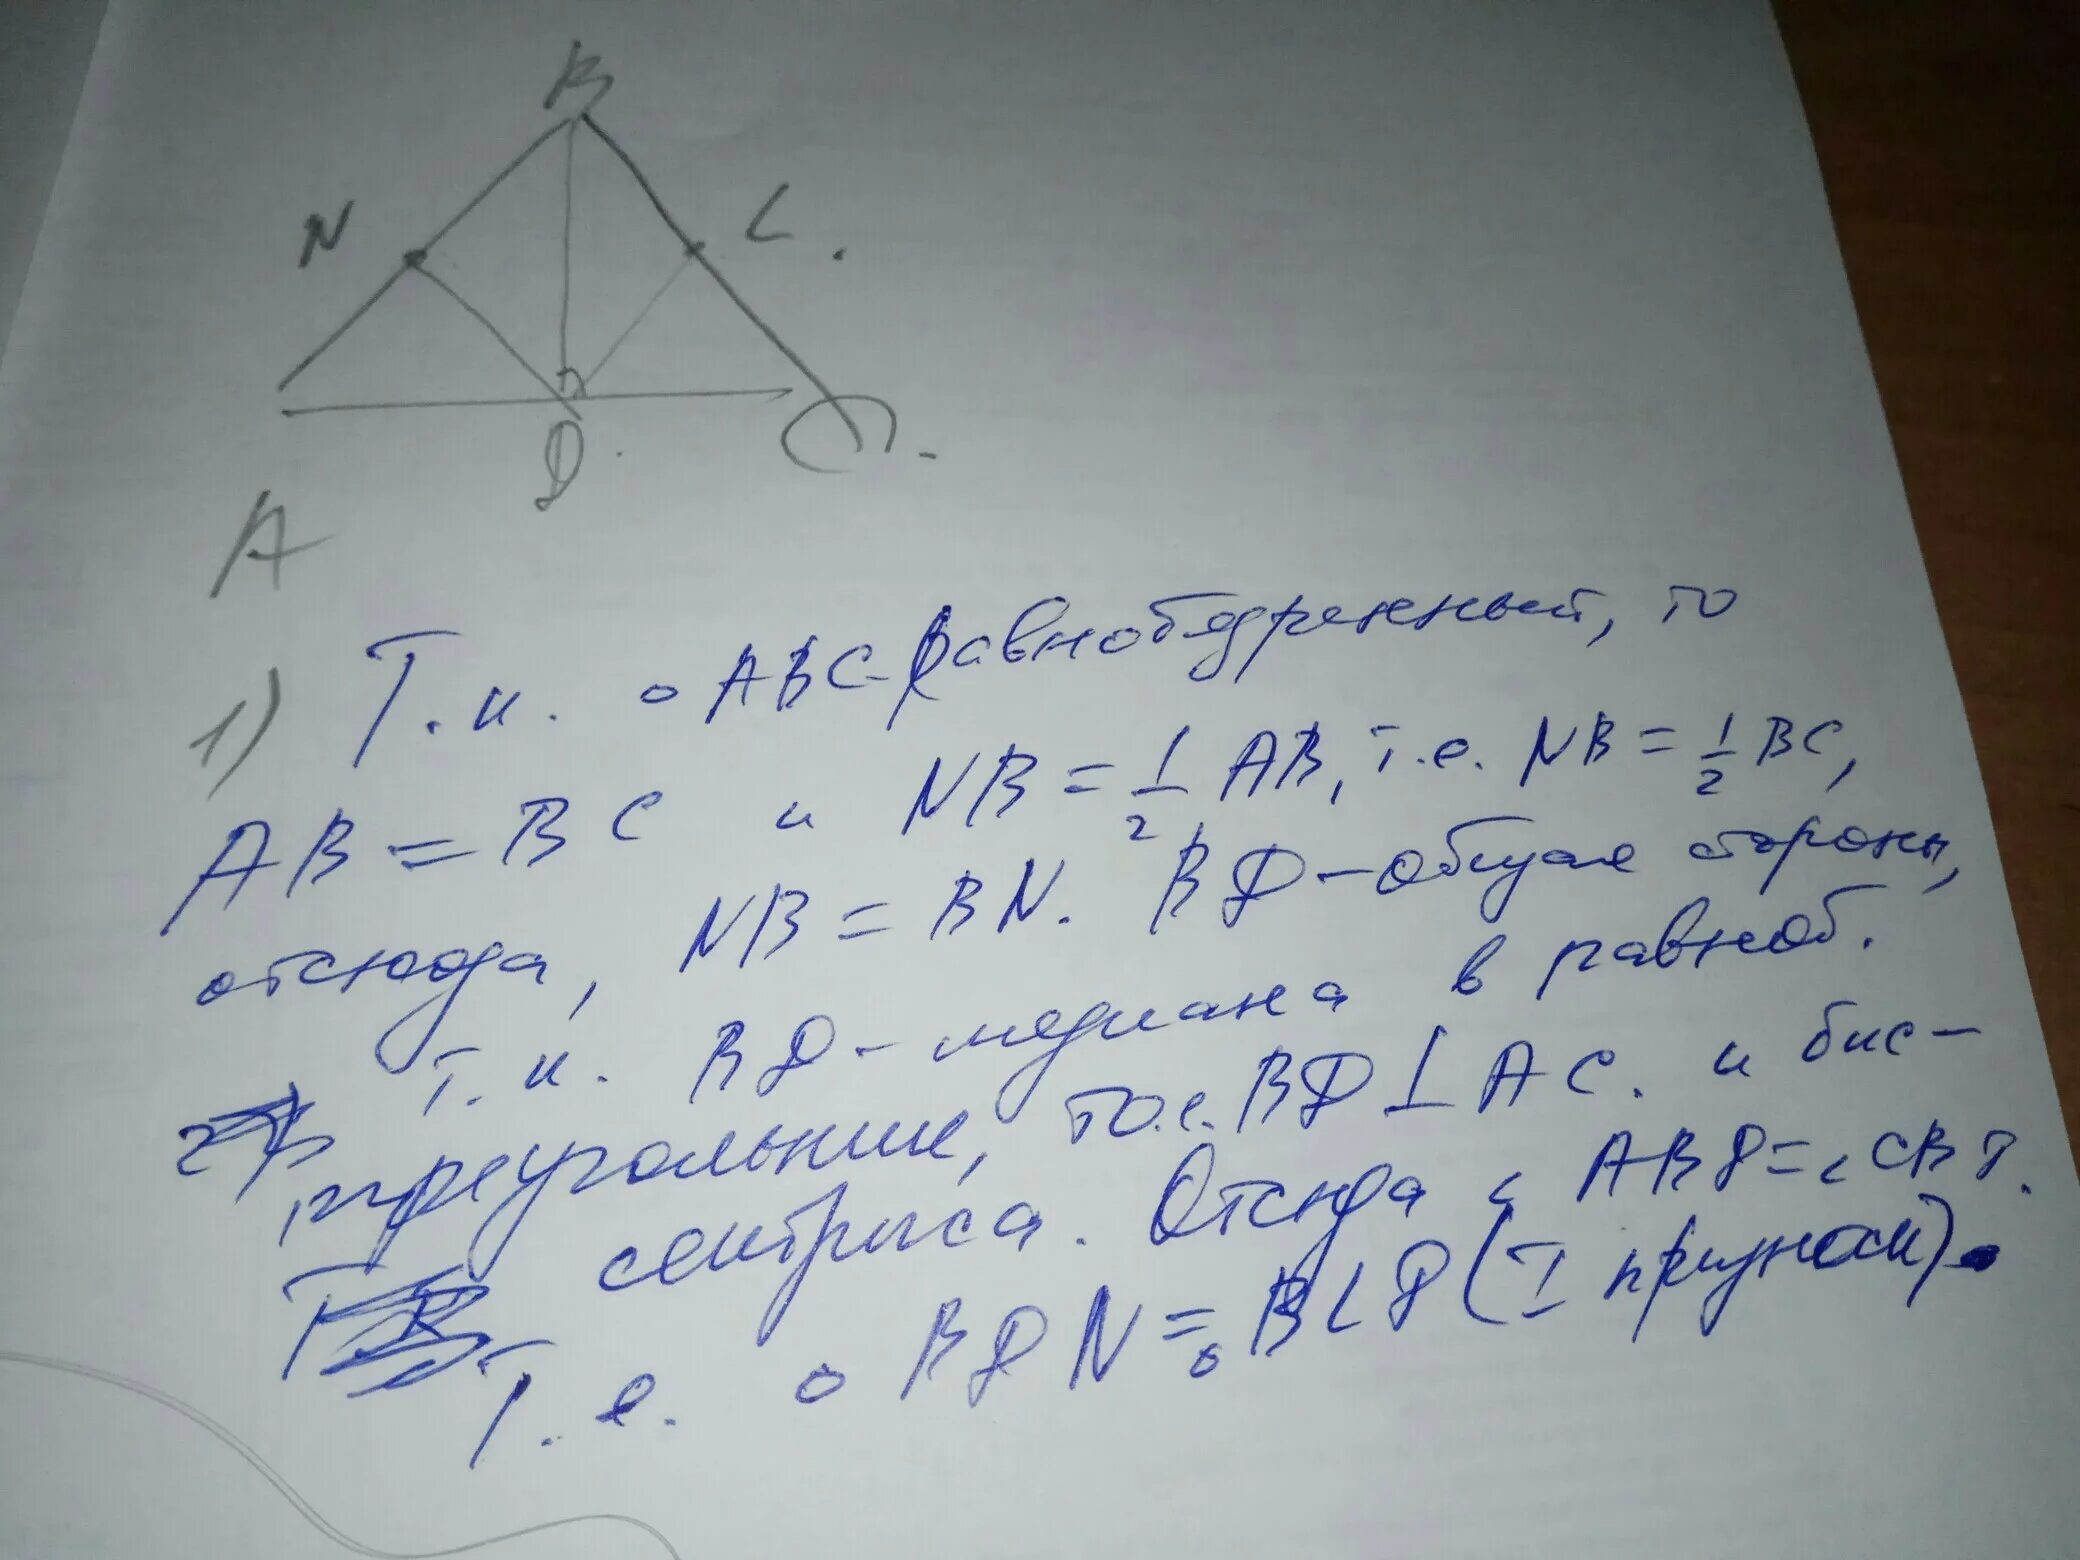 B
N
L.
D.
C.
A
1) Т.к. △ABC-Равнобедренный, то
AB = BC и NB = 1/2 AB, т.е. NB = 1/2 BC,
отсюда, NB = BN. BD - общая стороны,
т.к. BD - медиана в равноб.
треугольнике, то.е. BD ⊥ AC. и бис-
сектриса. Отсюда ∠ABD = ∠CBD.
Т.е. △BDN = △BLD (I признак).